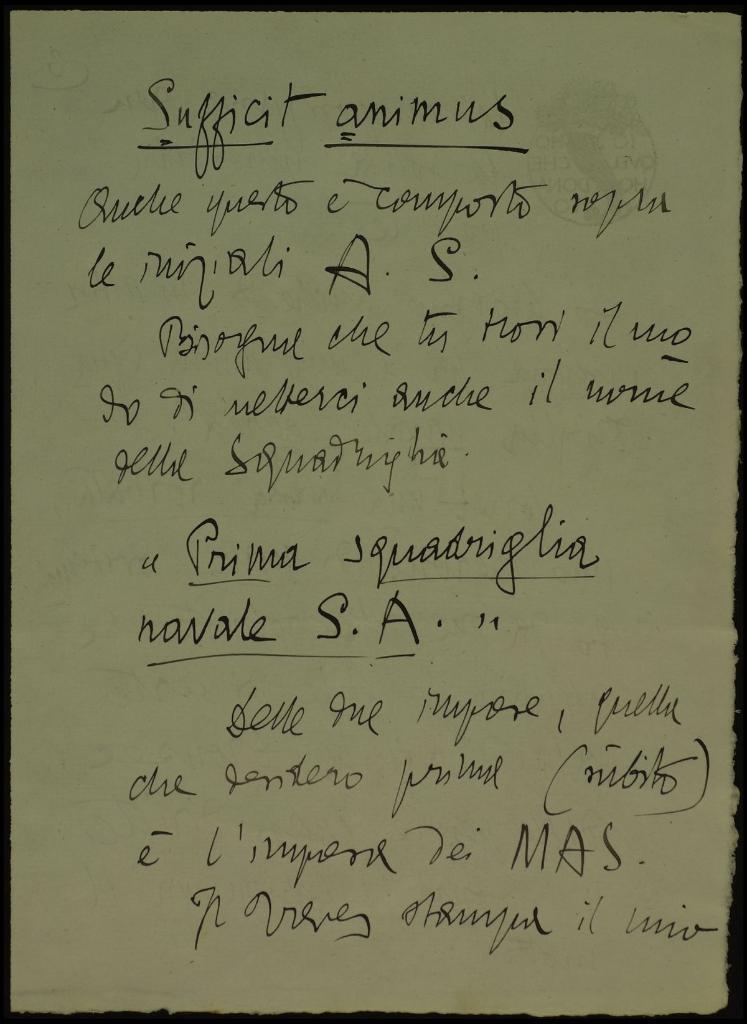 Sufficit animus
Anche questo è composto sopra
le iniziali A. S.
Bisogna che tu trovi il mo
do di metterci anche il nome
della Squadriglia.
"Prima squadriglia
navale S. A."
Delle due imprese, quella
che desidero prima (sùbito)
è l'impresa dei MAS.
Il Treves stampa il mio